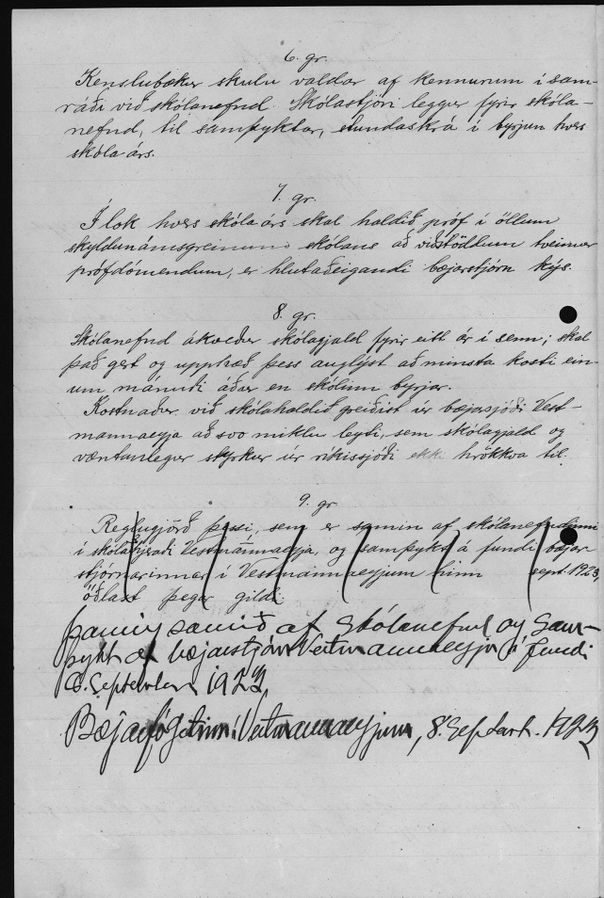 6. gr.
Kenslubækur skulu valdar af kennurum í sam-
ráði við skólanefnd. Skólastjóri leggur fyrir skóla-
nefnd, til samþyktar, stundaskrá í byrjun hvers
skóla árs.
7. gr.
Í lok hvers skóla árs skal haldið próf í öllum
skyldunámsgreinum skólans að viðstöddum tveimur
prófdómendum, er hlutaðeigandi bæjarstjórn kýs.
8. gr.
Skólanefnd ákveður skólagjald fyrir eitt ár í senn; skal
það gert og upphæð þess auglýst að minsta kosti ein-
um mánuði áður en skólinn byrjar.
Kostnaður við skólahaldið greiðist úr bæjarsjóði Vest-
mannaeyja að svo miklu leyti, sem skólagjald og
væntanlegur styrkur úr ríkissjóði ekki hrökkva til.
9. gr
Reglugjörð þessi, sem er samin af skólanefndinni
í skólahjeraði Vestmannaeyja, og samþykt á fundi bæjar
stjórnarinnar í Vestmannaeyjum hinn sept. 1923,
öðlast þegar gildi.
Þannig samið af skólanefnd og sam-
þykt af bæjarstjórn Vestmannaeyja á fundi
September 1923.
Bæjarfógetinn í Vestmannaeyjum, 8. Septbr. 1923